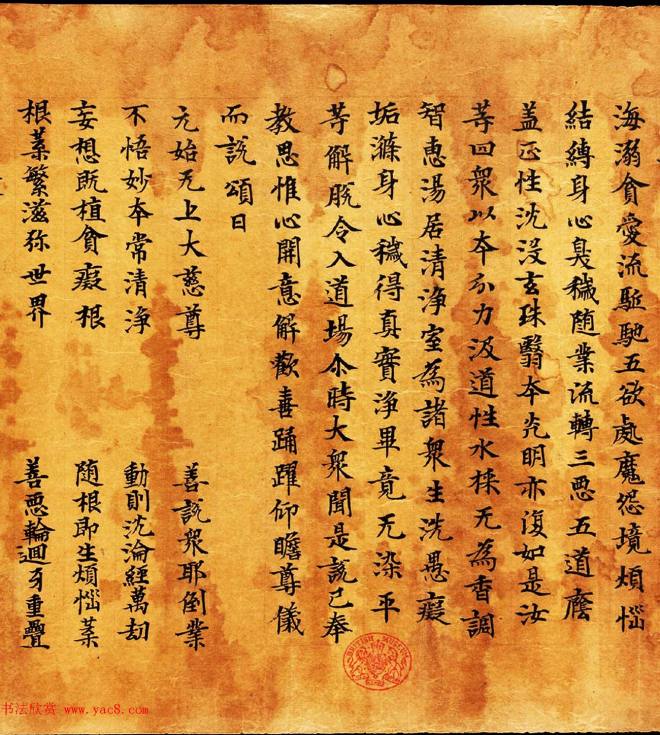 海溺貪愛流駈馳五欲處魔怨境煩惱
結縛身心臭穢随業流轉三惡五道塵
盖正性沈没玄珠翳夲光明亦復如是汝
等四衆以夲分力汲道性水採无為香調
智惠湯居清浄室為諸衆生洗愚癡
垢滌身心穢得真實浄畢竟无染平
等解脱令入道場尒時大衆聞是說已奉
教思惟心開意解歡喜踊躍仰瞻尊儀
而說頌曰
元始无上大慈尊 善說衆耶倒業
不悟妙夲常清浄 動則沈淪經萬劫
妄想既植貪癡根 随根即生煩惱葉
根葉繁滋弥世界 善惡輪迴互重疊
BRITISH MUSEUM
书法欣赏 www.yac8.com